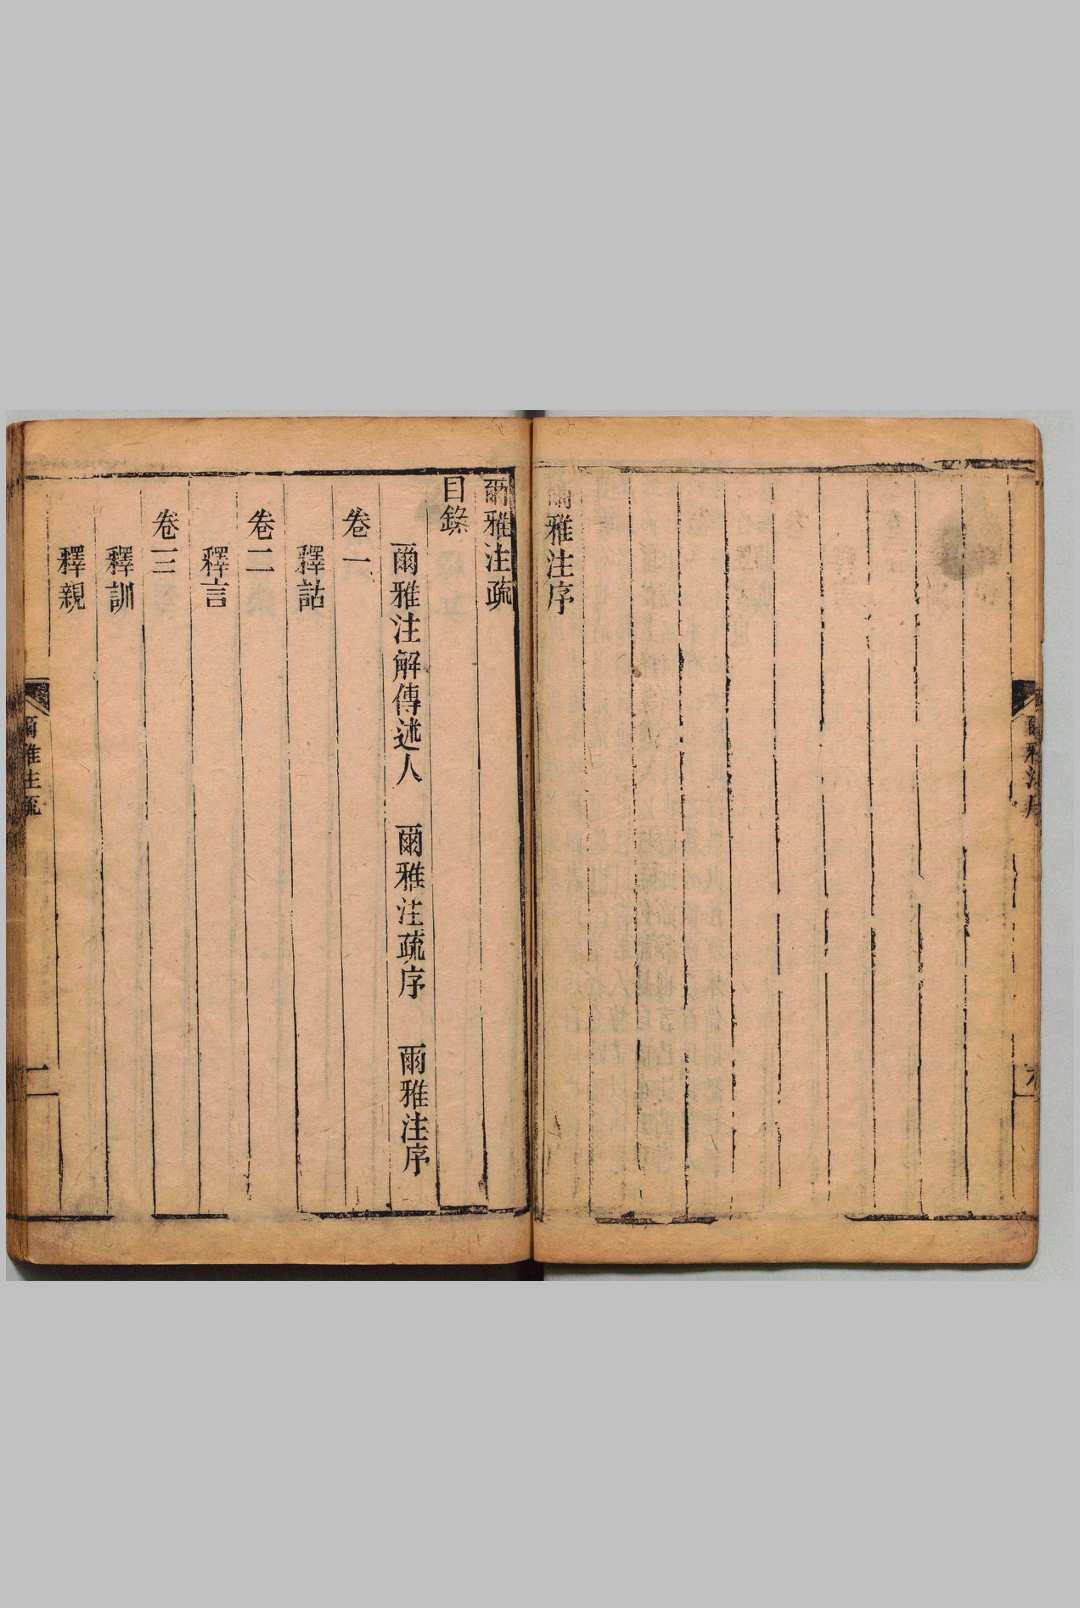 爾雅注序
爾雅注疏
目錄
爾雅注解傳述人　爾雅注疏序　爾雅注序
卷一
釋詁
卷二
釋言
卷三
釋訓
釋親
爾雅注疏
一